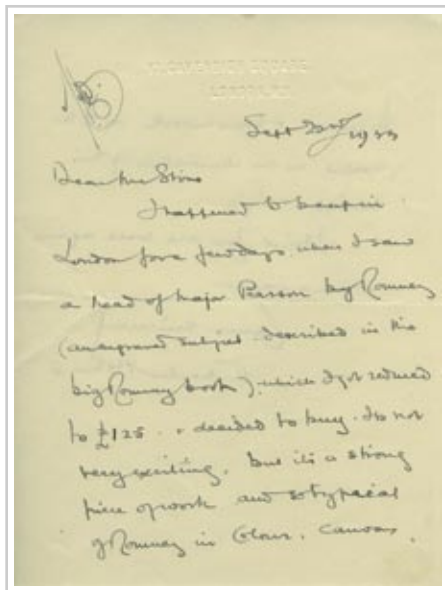 Sept 22nd 1933
Dear Mr Stone
I happened to be in
London for a few days when I saw
a head of Major Pearson by Romney
(an engraved subject described in the
big Romney book) which I got reduced
to £125 . decided to buy. It's not
very exciting, but it's a strong
piece of work and so typical
of Romney in Colour. Canvas